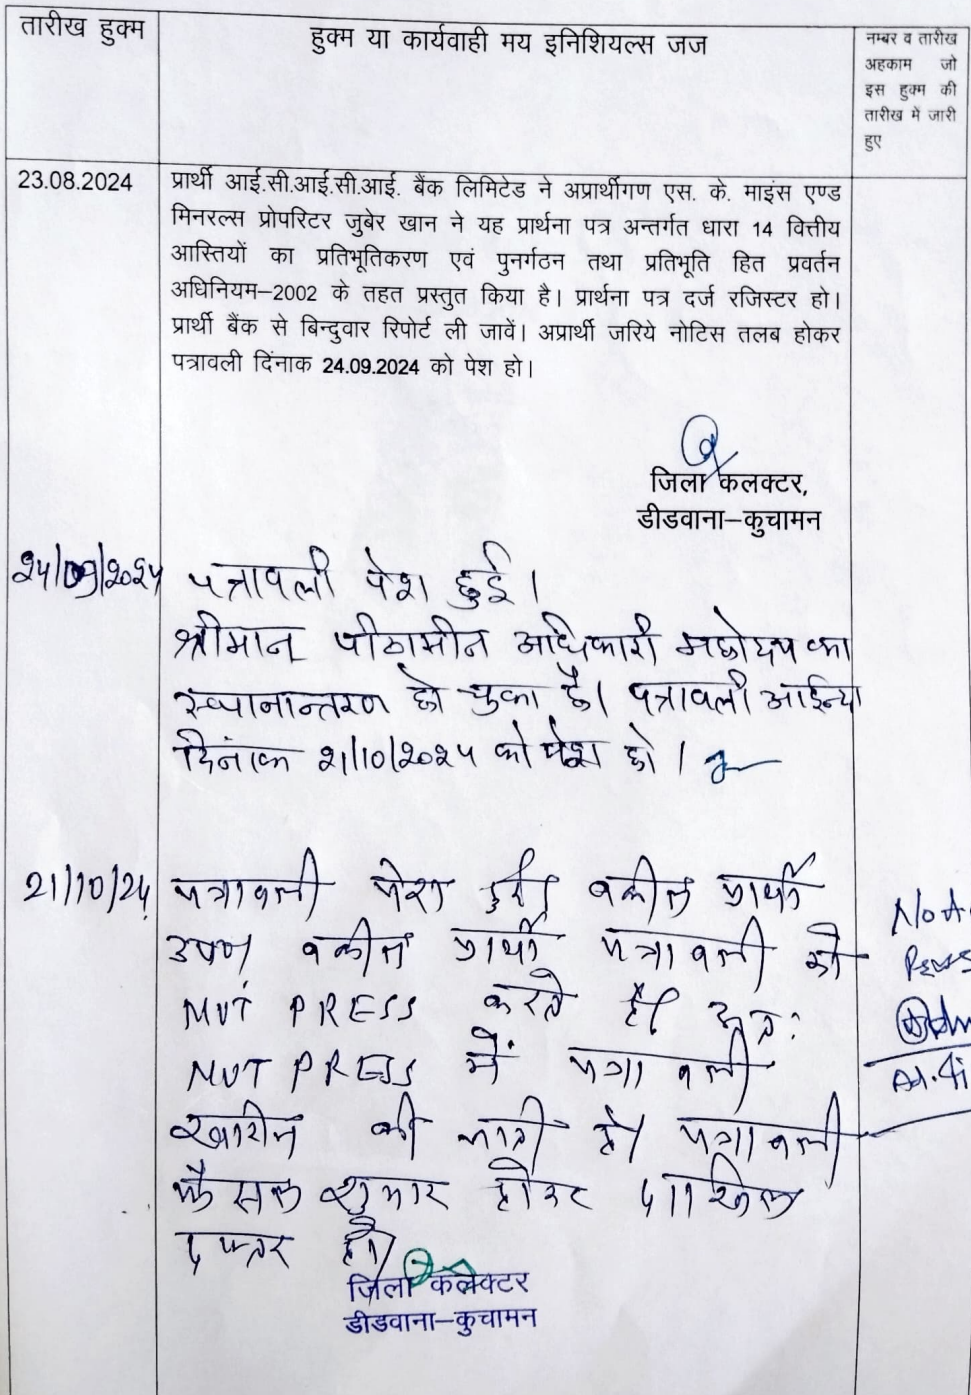 तारीख हुक्म
हुक्म या कार्यवाही मय इनिशियल्स जज
नम्बर व तारीख
अहकाम जो
इस हुक्म की
तारीख में जारी
हुए
23.08.2024
प्रार्थी आई.सी.आई.सी.आई. बैंक लिमिटेड ने अप्रार्थीगण एस. के. माइंस एण्ड
मिनरल्स प्रोपरिटर जुबेर खान ने यह प्रार्थना पत्र अन्तर्गत धारा 14 वित्तीय
आस्तियों का प्रतिभूतिकरण एवं पुनर्गठन तथा प्रतिभूति हित प्रवर्तन
अधिनियम–2002 के तहत प्रस्तुत किया है। प्रार्थना पत्र दर्ज रजिस्टर हो।
प्रार्थी बैंक से बिन्दुवार रिपोर्ट ली जावें। अप्रार्थी जरिये नोटिस तलब होकर
पत्रावली दिंनाक 24.09.2024 को पेश हो।
जिला कलक्टर,
डीडवाना–कुचामन
२४/०९/२०२४ पत्रावली पेश हुई।
श्रीमान् पीठासीन अधिकारी महोदय का
स्थानान्तरण हो चुका है। पत्रावली आईन्दा
दिनांक २१/10/२०२४ को पेश हो।
21/10/24 पत्रावली पेश हुई। वकील प्रार्थी
उप० वकील प्रार्थी पत्रावली को
NOT PRESS करते है। अतः
NOT PRESS में पत्रावली
खारीज की जाती है। पत्रावली
फैसल शुमार होकर दाखिल
दफ्तर हो।
जिला कलेक्टर
डीडवाना–कुचामन